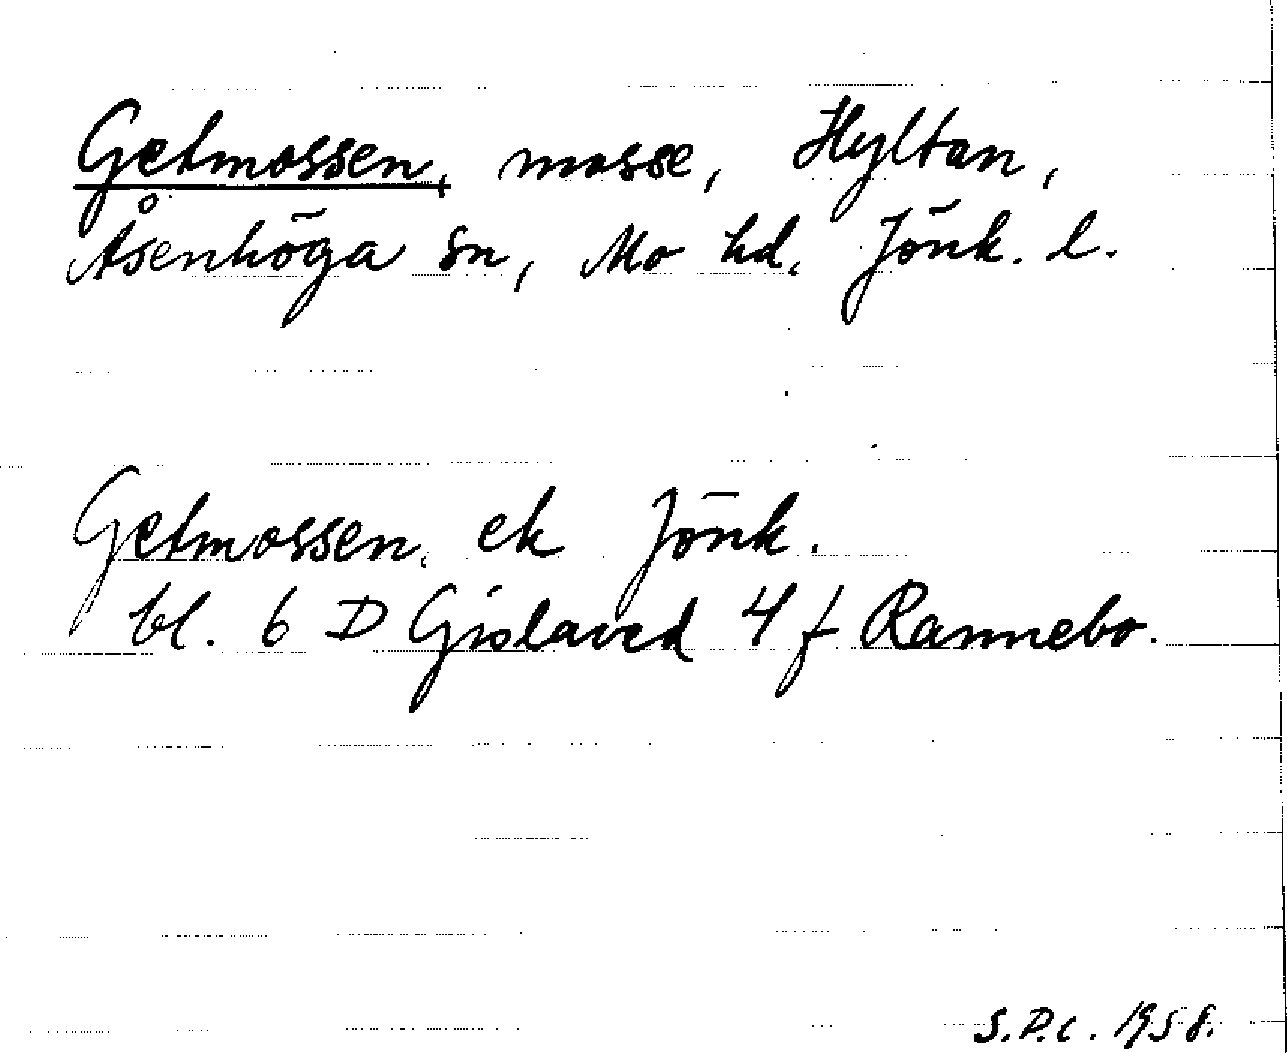 Getmossen, mosse, Hyltan,
Åsenhöga sn, Mo hd. Jönk. l.
Getmossen. ek Jönk.
bl. 6 D Gislaved 4 f Rannebo.
S.P.C. 1958.